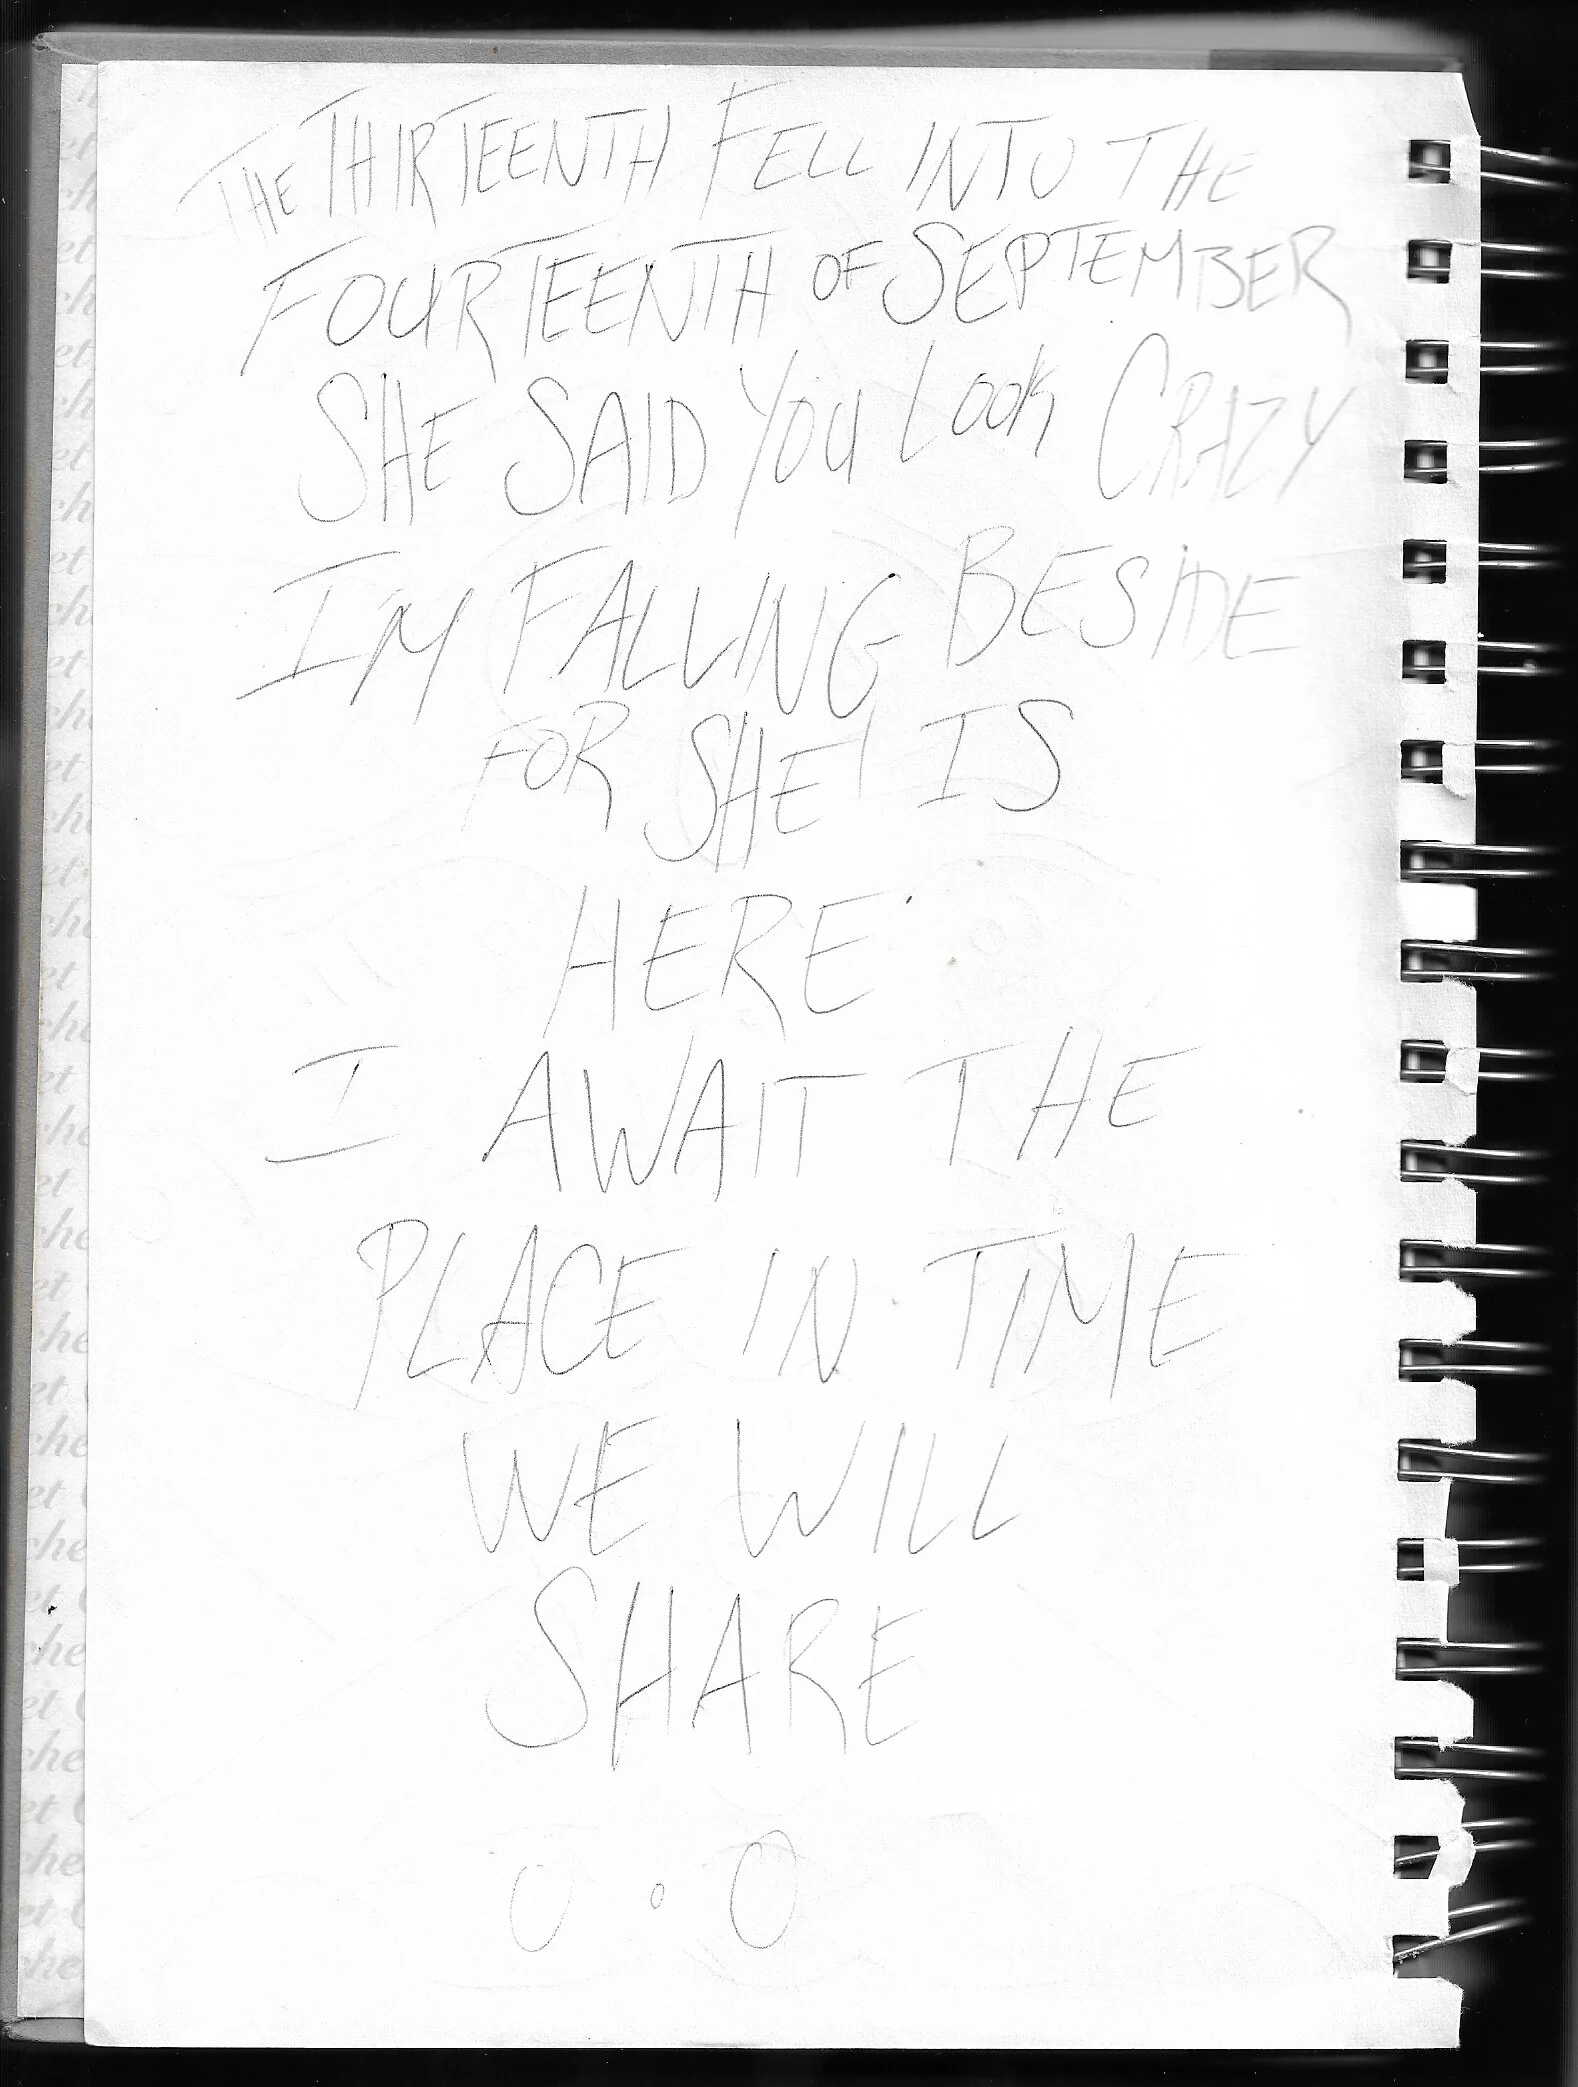 THE THIRTEENTH FELL INTO THE
FOURTEENTH OF SEPTEMBER
SHE SAID YOU LOOK CRAZY
IM FALLING BESIDE
FOR SHE IS
HERE
I AWAIT THE
PLACE IN TIME
WE WILL
SHARE